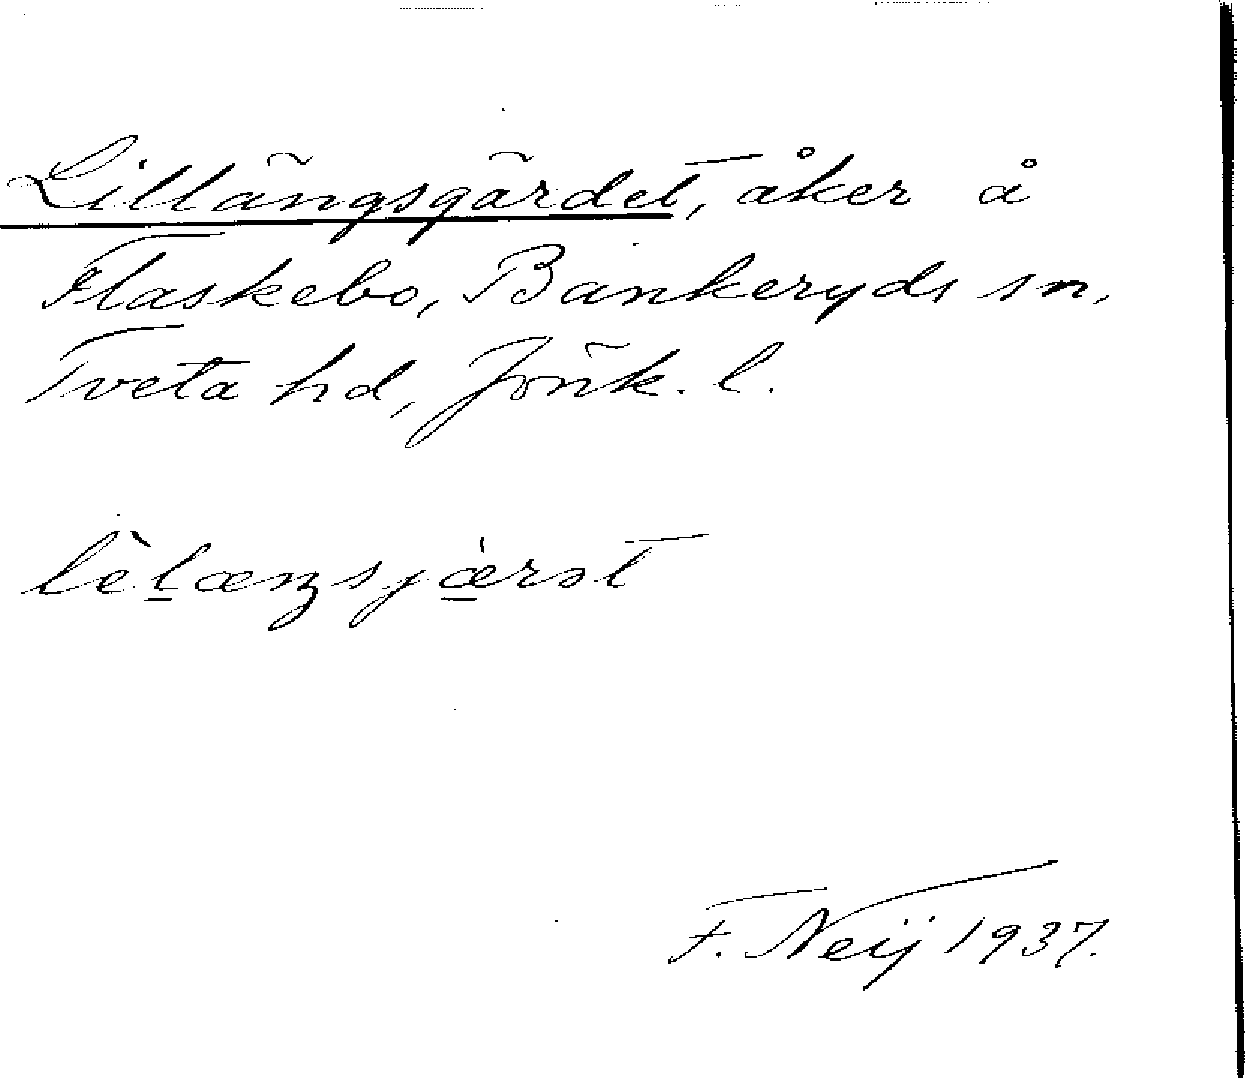 Lillängsgärdet, åker å
Flaskebo, Bankeryds sn,
Tveta hd, Jönk. l.
F. Neij 1937.